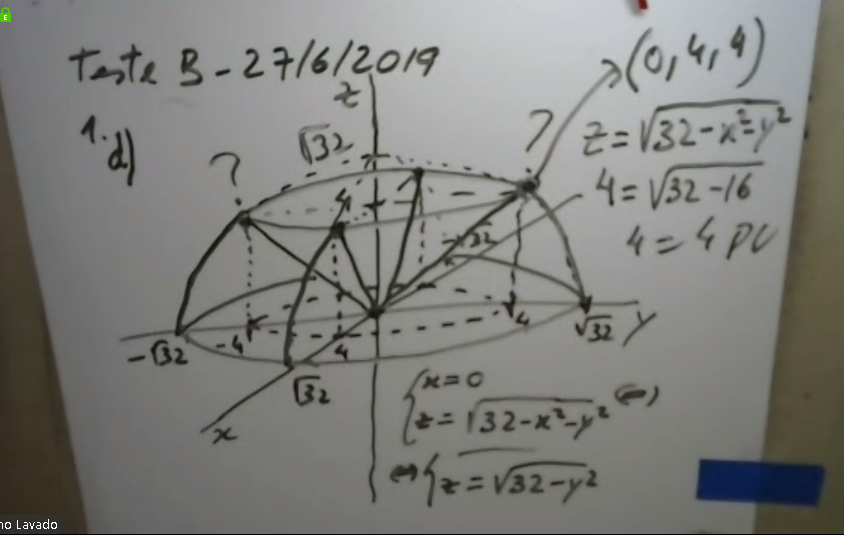 Teste B - 27/6/2019
1. d)
z
√32
?
?
(0, 4, 4)
z = √32 - x² - y²
4 = √32 - 16
4 = 4 PV
4
-√32
-4
4
4
√32
y
-√32
√32
x
{ x = 0
z = √32 - x² - y² (⇔)
⇔ { z = √32 - y²
no Lavado